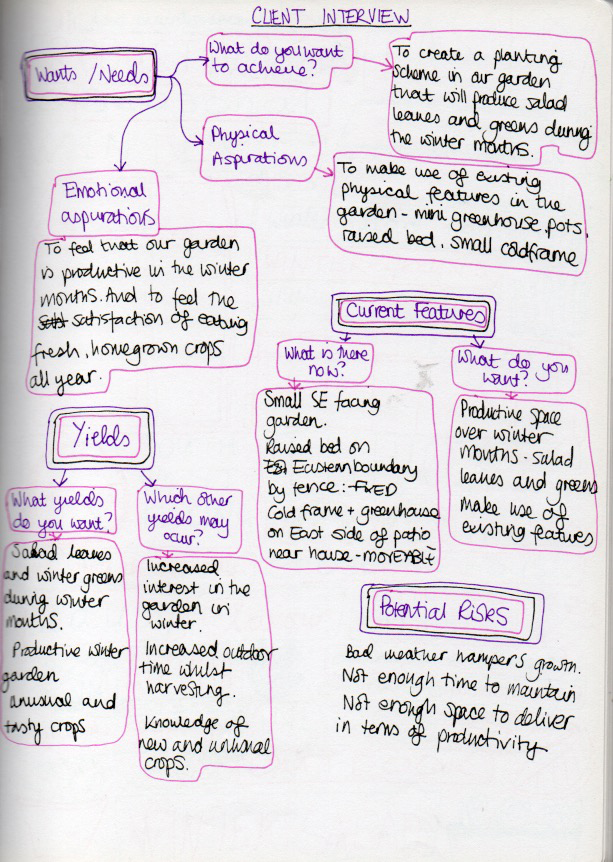 CLIENT INTERVIEW
Wants / Needs
What do you want
to achieve?
To create a planting
scheme in our garden
that will produce salad
leaves and greens during
the winter months.
Physical
Aspirations
To make use of existing
physical features in the
garden - mini greenhouse, pots,
raised bed, small coldframe
Emotional
aspirations
To feel that our garden
is productive in the winter
months. And to feel the
satisfaction of eating
fresh, homegrown crops
all year.
Current Features
What is there
now?
Small SE facing
garden.
Raised bed on
Eastern boundary
by fence: - FIXED
Cold frame + greenhouse
on East side of patio
near house - MOVEABLE
What do you
want?
Productive space
over winter
months - salad
leaves and greens
make use of
existing features
Yields
What yields
do you want?
Salad leaves
and winter greens
during winter
months.
Productive winter
garden
unusual and
tasty crops
Which other
yields may
occur?
Increased
interest in the
garden in
winter.
Increased outdoor
time whilst
harvesting.
Knowledge of
new and unusual
crops.
Potential Risks
Bad weather hampers growth.
Not enough time to maintain
Not enough space to deliver
in terms of productivity